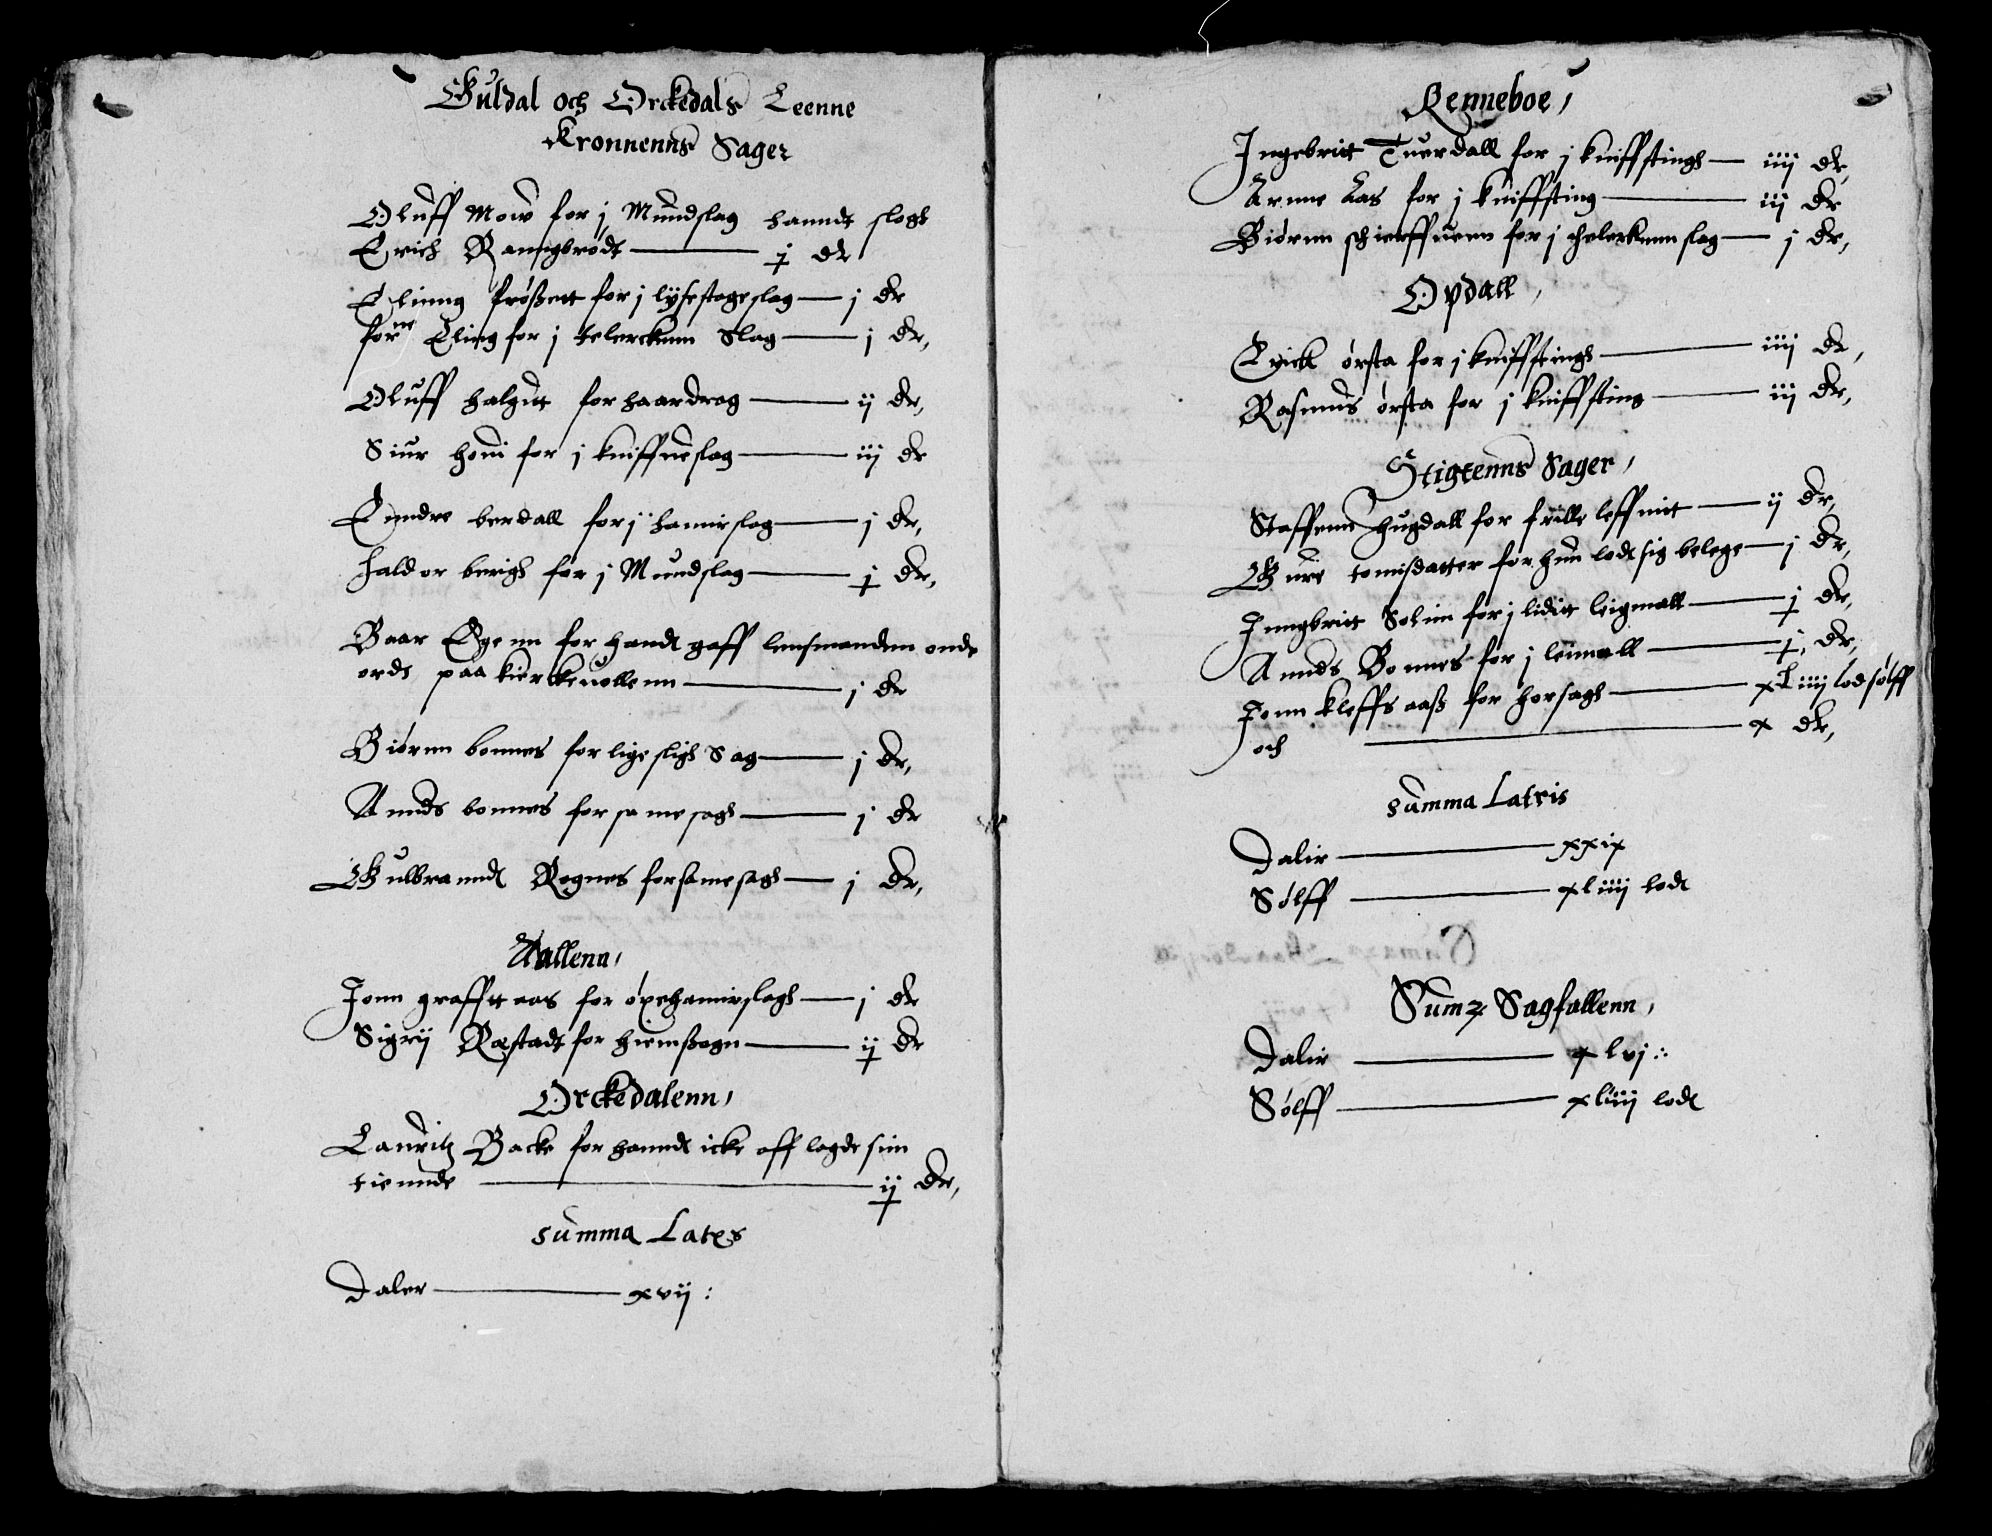 Guldal och Orckedals Leenne
Kronnenns Sager
Oluff Mow for j Mundslag hanndt slogh
Erich Ranngbrodt — j dr
Elinng frøßett for j lysestageslag — j dr
forne Eling for j telerckenn Slag — j dr,
Oluff halgutt for haardrag — ij dr,
Siur honi for j kniffueslag — iij dr
Eindre berdall for j hamirslag — j dr,
Haldor berigh for j Mundslag — j dr,
Baar Øgenn for hand gaff lensmanden onde
ordt paa kierckeuollenn — j dr
Biørnn bonnes for lige sligh Sag — j dr,
Amuds bonnes for samesagh — j dr
Gulbrannd Rognes for samesagh — j dr,
Aallenn,
Jonn grafft aas for øxehamirslagh — j dr
Sigrij Røstadt for hiemßøgn — ij dr
Orckedalenn,
Lauritz Backe for hanndt icke aff lagde sin
tiennde — ij dr,
Summa Lateris
Daler — xvij :
Renneboe,
Ingebritt Tuerdall for j kniffstingh — iiij dr,
Arnne Aas for j kniffsting — iij dr
Biørnn schierffuenn for j thelerkenn slag — j dr,
Opdall,
Erick ørsta for j kniffstingh — iiij dr,
Rasmus ørsta for j kniffsting — iij dr,
Stigtenns Sager,
Staffenn Hugdall for frille leffnitt — ij dr,
Gure tomisdatter for hun lod sig belege — j dr,
Inngbritt Solim for j liditt leigmall — j dr,
Amuds Bonnes for j leimall — j, dr,
Jonn kleffs aaß for horsagh — xliiij lod sølff
och — x dr,
Summa Lateris
Dalir — xxix
Sølff — xliiij lod
Summa Sagfallenn,
Dalir — xlvj :
Sølff — xliiij lod